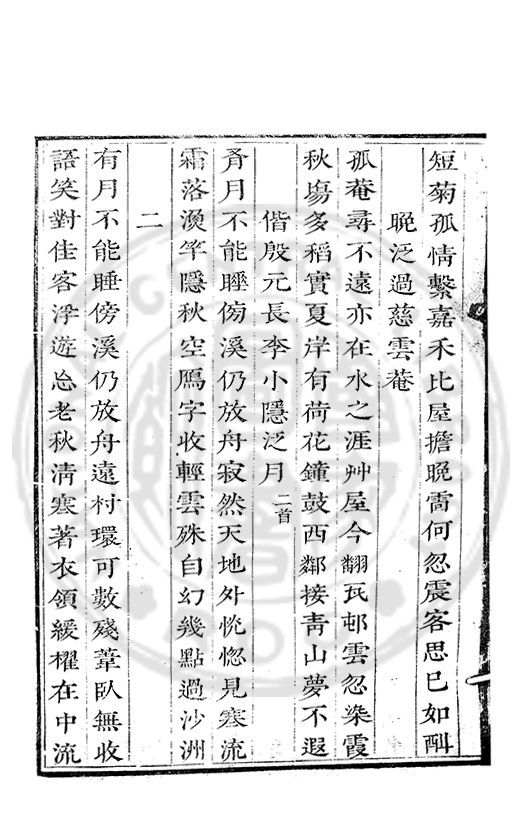 短菊孤情繫嘉禾比屋擔晚需何忽震客思已如酣
晚泛過慈雲菴
孤菴尋不遠亦在水之涯艸屋今翻瓦邨雲忽染霞
秋塲多稻實夏岸有荷花鐘鼓西鄰接青山夢不遐
偕殷元長李小隱泛月二首
有月不能睡傍溪仍放舟寂然天地外恍惚見寒流
霜落漁竿隱秋空鴈字收輕雲殊自幻幾點過沙洲
二
有月不能睡傍溪仍放舟遠村環可數殘葦臥無收
語笑對佳客浮遊怂老秋清寒著衣領緩櫂在中流